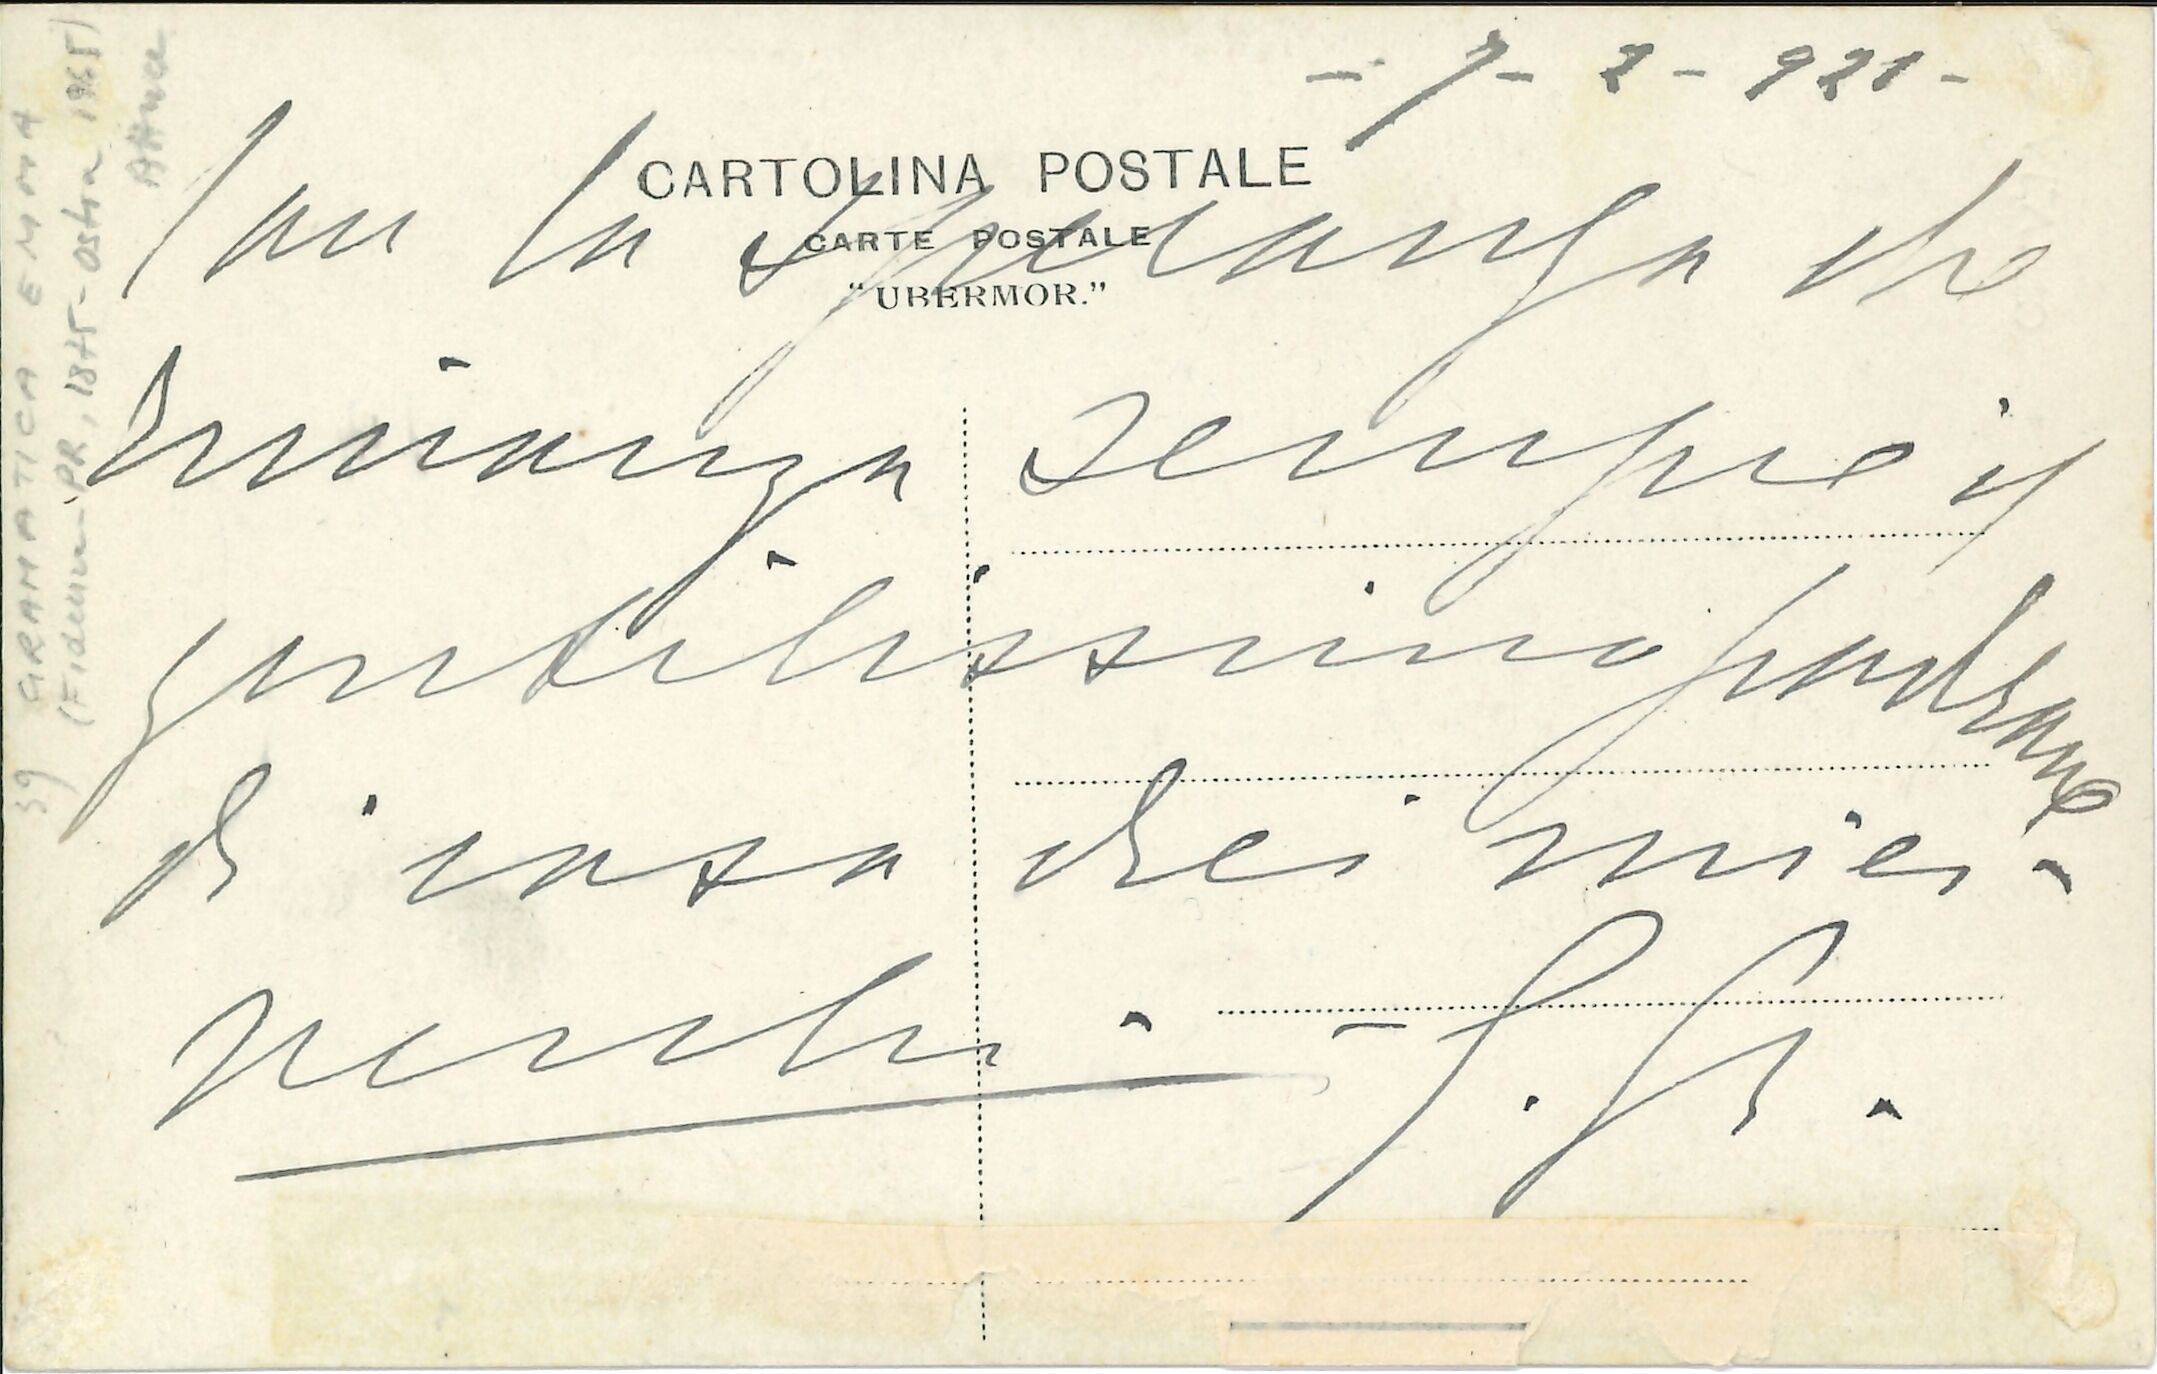 - 7 - 2 - 921 -
CARTOLINA POSTALE
CARTE POSTALE
"UBERMOR."
Con la speranza che
rimanga sempre il
gentilissimo padrone
di casa dei miei
verdi
GRAMATICA EMMA
(Fidenza PR, 1875 - Ostia 1965)
Attrice
39